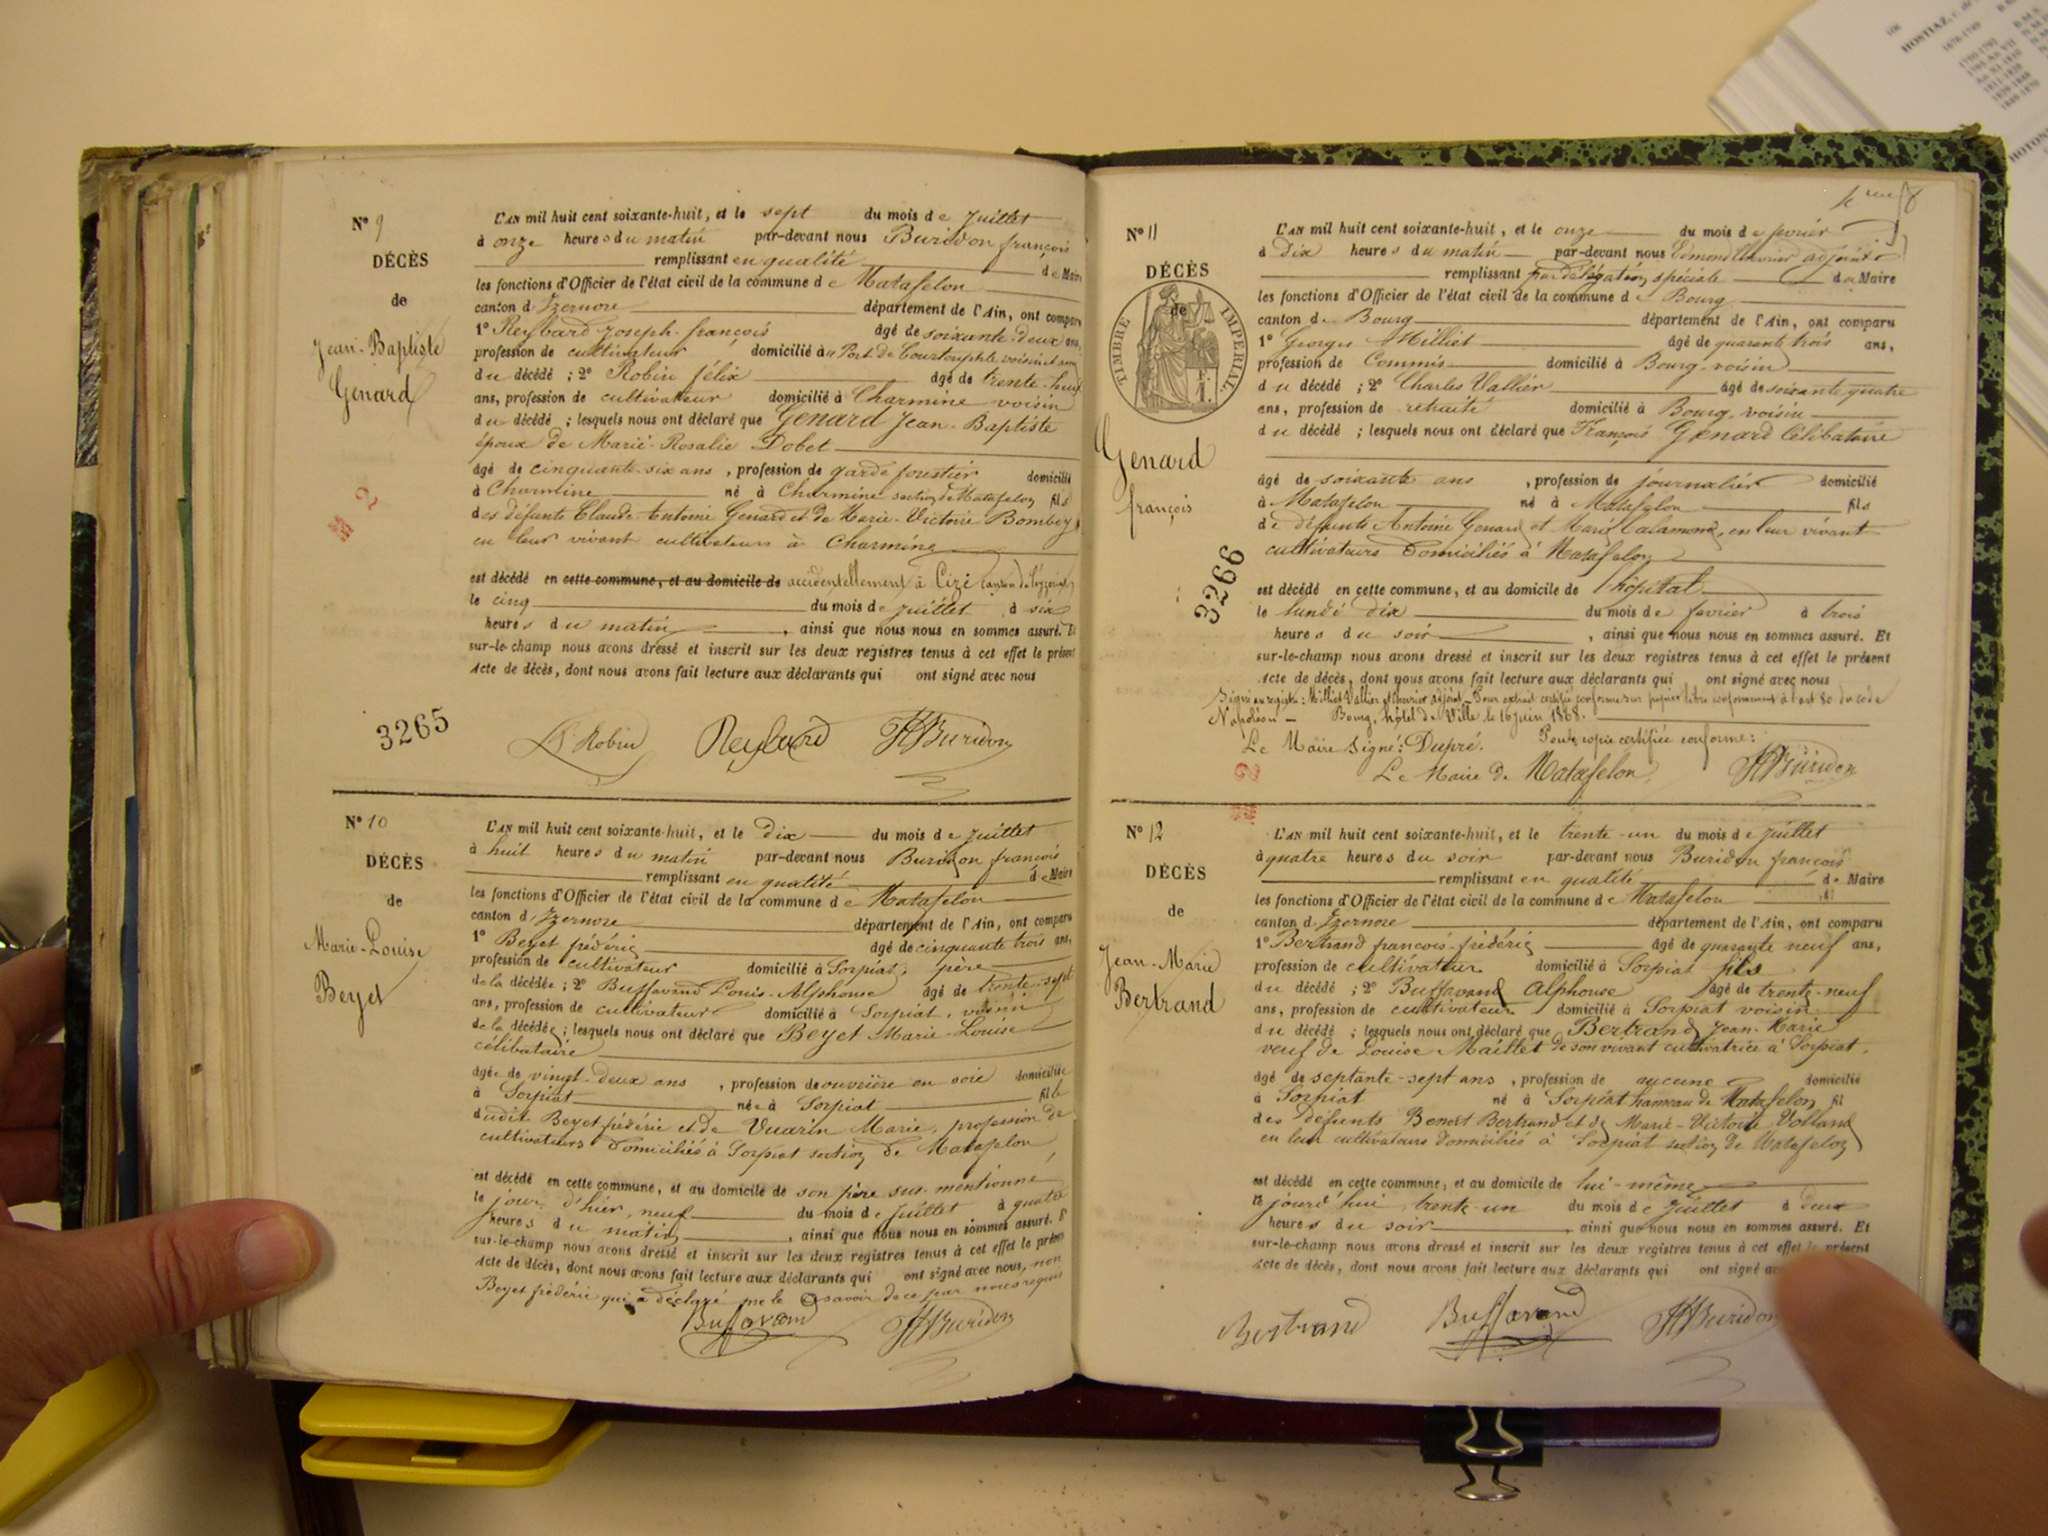 N° 9
DÉCÈS
de
Jean-Baptiste
Genard
L'AN mil huit cent soixante-huit, et le sept du mois de juillet
à onze heures du matin par-devant nous Buridon françois
remplissant en qualité de Maire
les fonctions d'Officier de l'état civil de la commune de Matafelon
canton d'Izernore département de l'Ain, ont comparu
1° Reybard Joseph-françois âgé de soixante-deux ans,
profession de cultivateur domicilié au Port de voisin
du décédé ; 2° Robin félix âgé de trente-huit
ans, profession de cultivateur domicilié à Charmine voisin
du décédé ; lesquels nous ont déclaré que Genard Jean-Baptiste
époux de Marie-Rosalie Dobet
âgé de cinquante-six ans, profession de garde forestier domicilié
à Charmine né à Charmine section de Matafelon fils
des défunts Claude-Antoine Genard et de Marie-Victoire Bombey
en leur vivant cultivateurs à Charmine
est décédé en cette commune, et au domicile de accidentellement à Cize canton de
le cinq du mois de juillet à six
heures du matin, ainsi que nous nous en sommes assuré. Et
sur-le-champ nous avons dressé et inscrit sur les deux registres tenus à cet effet le présent
acte de décès, dont nous avons fait lecture aux déclarants qui ont signé avec nous
3265
Robin Reybard Buridon
N° 10
DÉCÈS
de
Marie-Louise
Beyet
L'AN mil huit cent soixante-huit, et le dix du mois de juillet
à huit heures du matin par-devant nous Buridon françois
remplissant en qualité de Maire
les fonctions d'Officier de l'état civil de la commune de Matafelon
canton d'Izernore département de l'Ain, ont comparu
1° Beyet frédéric âgé de cinquante trois ans,
profession de cultivateur domicilié à Sorpiat, père
de la décédée ; 2° Buffavand Louis-Alphonse âgé de trente-sept
ans, profession de cultivateur domicilié à Sorpiat, voisin
de la décédée ; lesquels nous ont déclaré que Beyet Marie-Louise
célibataire
âgée de vingt-deux ans, profession de ouvrière en soie domiciliée
à Sorpiat née à Sorpiat fille
dudit Beyet frédéric et de Vuarin Marie, profession de
cultivateurs domiciliés à Sorpiat section de Matafelon
est décédé en cette commune, et au domicile de son père sus-mentionné
le jour d'hier, neuf du mois de juillet à quatre
heures du matin, ainsi que nous nous en sommes assuré. Et
sur-le-champ nous avons dressé et inscrit sur les deux registres tenus à cet effet le présent
acte de décès, dont nous avons fait lecture aux déclarants qui ont signé avec nous, non
Beyet frédéric qui a déclaré ne le savoir de ce par nous requis
Buffavand Buridon
N° 11
DÉCÈS
de
TIMBRE IMPÉRIAL
Genard
françois
3266
L'AN mil huit cent soixante-huit, et le onze du mois de février
à Dix heures du matin par-devant nous Edmond adjoint
remplissant par délégation spéciale du Maire
les fonctions d'Officier de l'état civil de la commune de Bourg
canton de Bourg département de l'Ain, ont comparu
1° Georges Milliet âgé de quarante trois ans,
profession de Commis domicilié à Bourg voisin
du décédé ; 2° Charles Vallier âgé de soixante quatre
ans, profession de retraité domicilié à Bourg, voisin
du décédé ; lesquels nous ont déclaré que François Genard Célibataire
âgé de soixante ans, profession de journalier domicilié
à Matafelon né à Matafelon fils
de défunts Antoine Genard et Marie Calamond, en leur vivant
cultivateurs domiciliés à Matafelon
est décédé en cette commune, et au domicile de l'hôpital
le lundi dix du mois de février à trois
heures du soir, ainsi que nous nous en sommes assuré. Et
sur-le-champ nous avons dressé et inscrit sur les deux registres tenus à cet effet le présent
acte de décès, dont nous avons fait lecture aux déclarants qui ont signé avec nous
Signé au registre : Milliet Vallier et adjoint – Pour extrait certifié conforme sur papier libre conformément à l'art 80 du code
Napoléon – Bourg, hôtel de Ville le 16 juin 1868.
Le Maire Signé : Dupré. Pour copie certifiée conforme :
Le Maire de Matafelon, Buridon
N° 12
DÉCÈS
de
Jean-Marie
Bertrand
L'AN mil huit cent soixante-huit, et le trente-un du mois de juillet
à quatre heures du soir par-devant nous Buridon françois
remplissant en qualité de Maire
les fonctions d'Officier de l'état civil de la commune de Matafelon
canton d'Izernore département de l'Ain, ont comparu
1° Bertrand françois-frédéric âgé de quarante neuf ans,
profession de cultivateur domicilié à Sorpiat fils
du décédé ; 2° Buffavand Alphonse âgé de trente-neuf
ans, profession de cultivateur domicilié à Sorpiat voisin
du décédé ; lesquels nous ont déclaré que Bertrand Jean-Marie
veuf de Louise Maillet de son vivant cultivatrice à Sorpiat,
âgé de septante-sept ans, profession de aucune domicilié
à Sorpiat né à Sorpiat hameau de Matafelon fil
des défunts Benoit Bertrand et de Marie-Victoire Volland
en leur cultivateurs domiciliés à Sorpiat section de Matafelon
est décédé en cette commune, et au domicile de lui-même
le jourd'hui trente-un du mois de juillet à deux
heures du soir, ainsi que nous nous en sommes assuré. Et
sur-le-champ nous avons dressé et inscrit sur les deux registres tenus à cet effet le présent
acte de décès, dont nous avons fait lecture aux déclarants qui ont signé
Bertrand Buffavand Buridon
HOSTIAZ